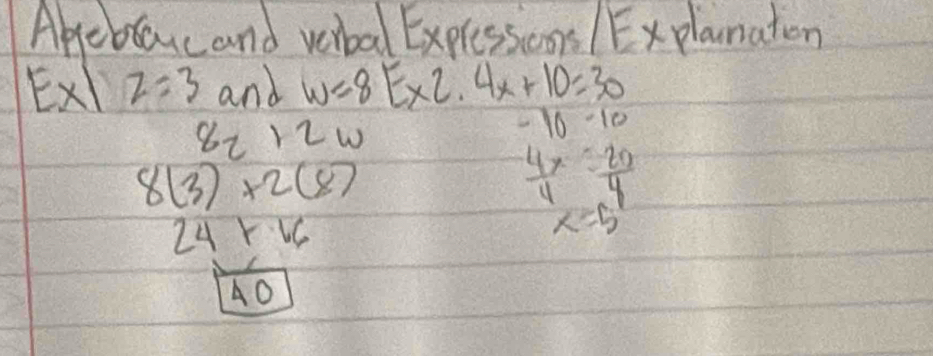 Algebraic and verbal Expressions / Explaination
Ex1 z=3 and w=8 Ex2. 4x+10=30
8z+2w
-10 -10
8(3)+2(8)
4x/4 = 20/4
24+16
x=5
40